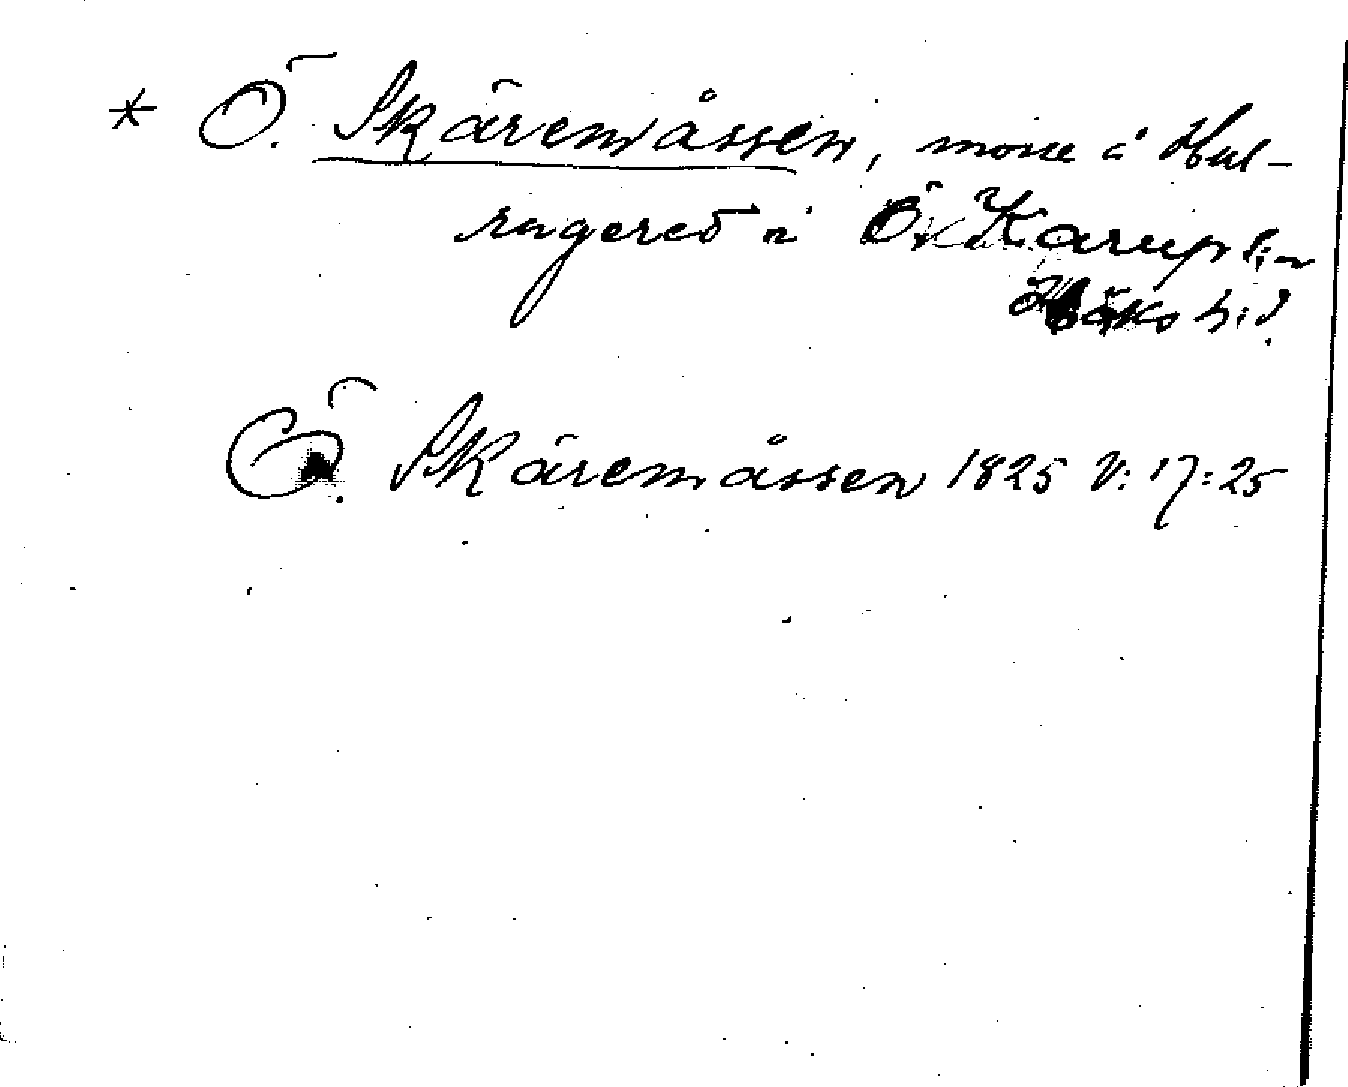 * Ö. Skäremåssen, mosse i Hul-
ragered i Ö Karups sn
Höks hd.
Ö. Skäremåssen 1825 V: 17:25